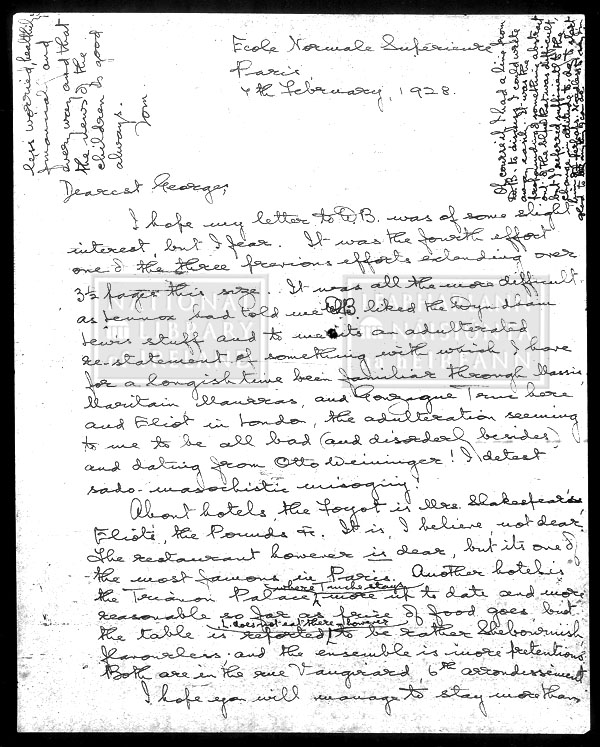 Ecole Normale Supérieure
Paris
7th February, 1928.
Dearest George,
I hope my letter to W.B. was of some slight
interest, but I fear. It was the fourth effort
one of the three previous efforts extending over
3½ pages this size. It was all the more difficult
as Lennox had told me WB liked the Wyndham
Lewis stuff and to me its an adulterated
re-statement of something with which I have
for a longish time been familiar through Massis
Maritain Maurras, and Gonzague Truc here
and Eliot in London, the adulteration seeming
to me to be all bad (and disorderly besides)
and dating from Otto Weininger! I detest
sado-masochistic misogyny!
About hotels, the Foyot is Mrs. Shakespear's
Eliots, the Pounds &c. It is, I believe, not dear,
The restaurant however is dear, but its one of
the most famous in Paris. Another hotel is
where Tunche stays
the Trianon Palace, more up to date and more
reasonable so far as price of food goes but
I does not eat there however
the table is reported to be rather Shelbournish
flavourless and the ensemble is more pretentious
Both are in the rue Vaugirard, 6th arrondissement
I hope you will manage to stay more than
less worried, healthily
financial and
every way and that
the news of the
children is good
always.
Tom
Of course if I had a line from
W.B. to discuss, I could write
away easily. It was the
propounding something abstract
out of the blue that was difficult,